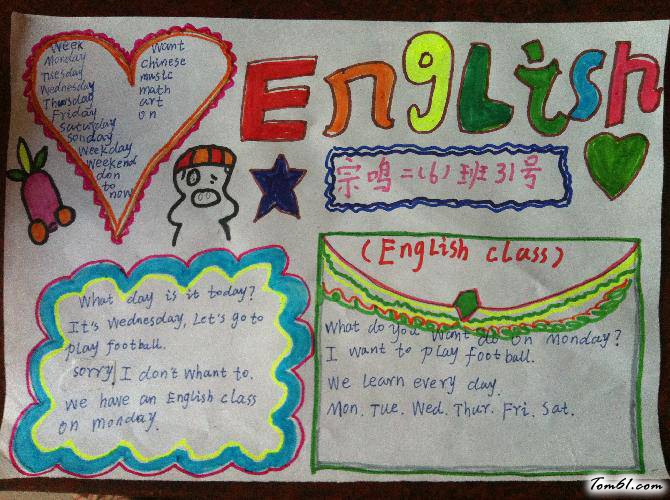 English
Week
Monday
Tuesday
Wednesday
Thursday
Friday
Saturday
Sonday
Weekday
Weekend
don
to
now
Want
Chinese
music
math
art
on
宗鸣二(6)班31号
What day is it today?
It's Wednesday, Let's go to
play football.
sorry I don't whant to.
We have an English class
on monday.
(English class)
What do you want do on monday?
I want to play football.
We learn every day.
Mon. Tue. Wed. Thur. Fri. Sat.
Tom61.com